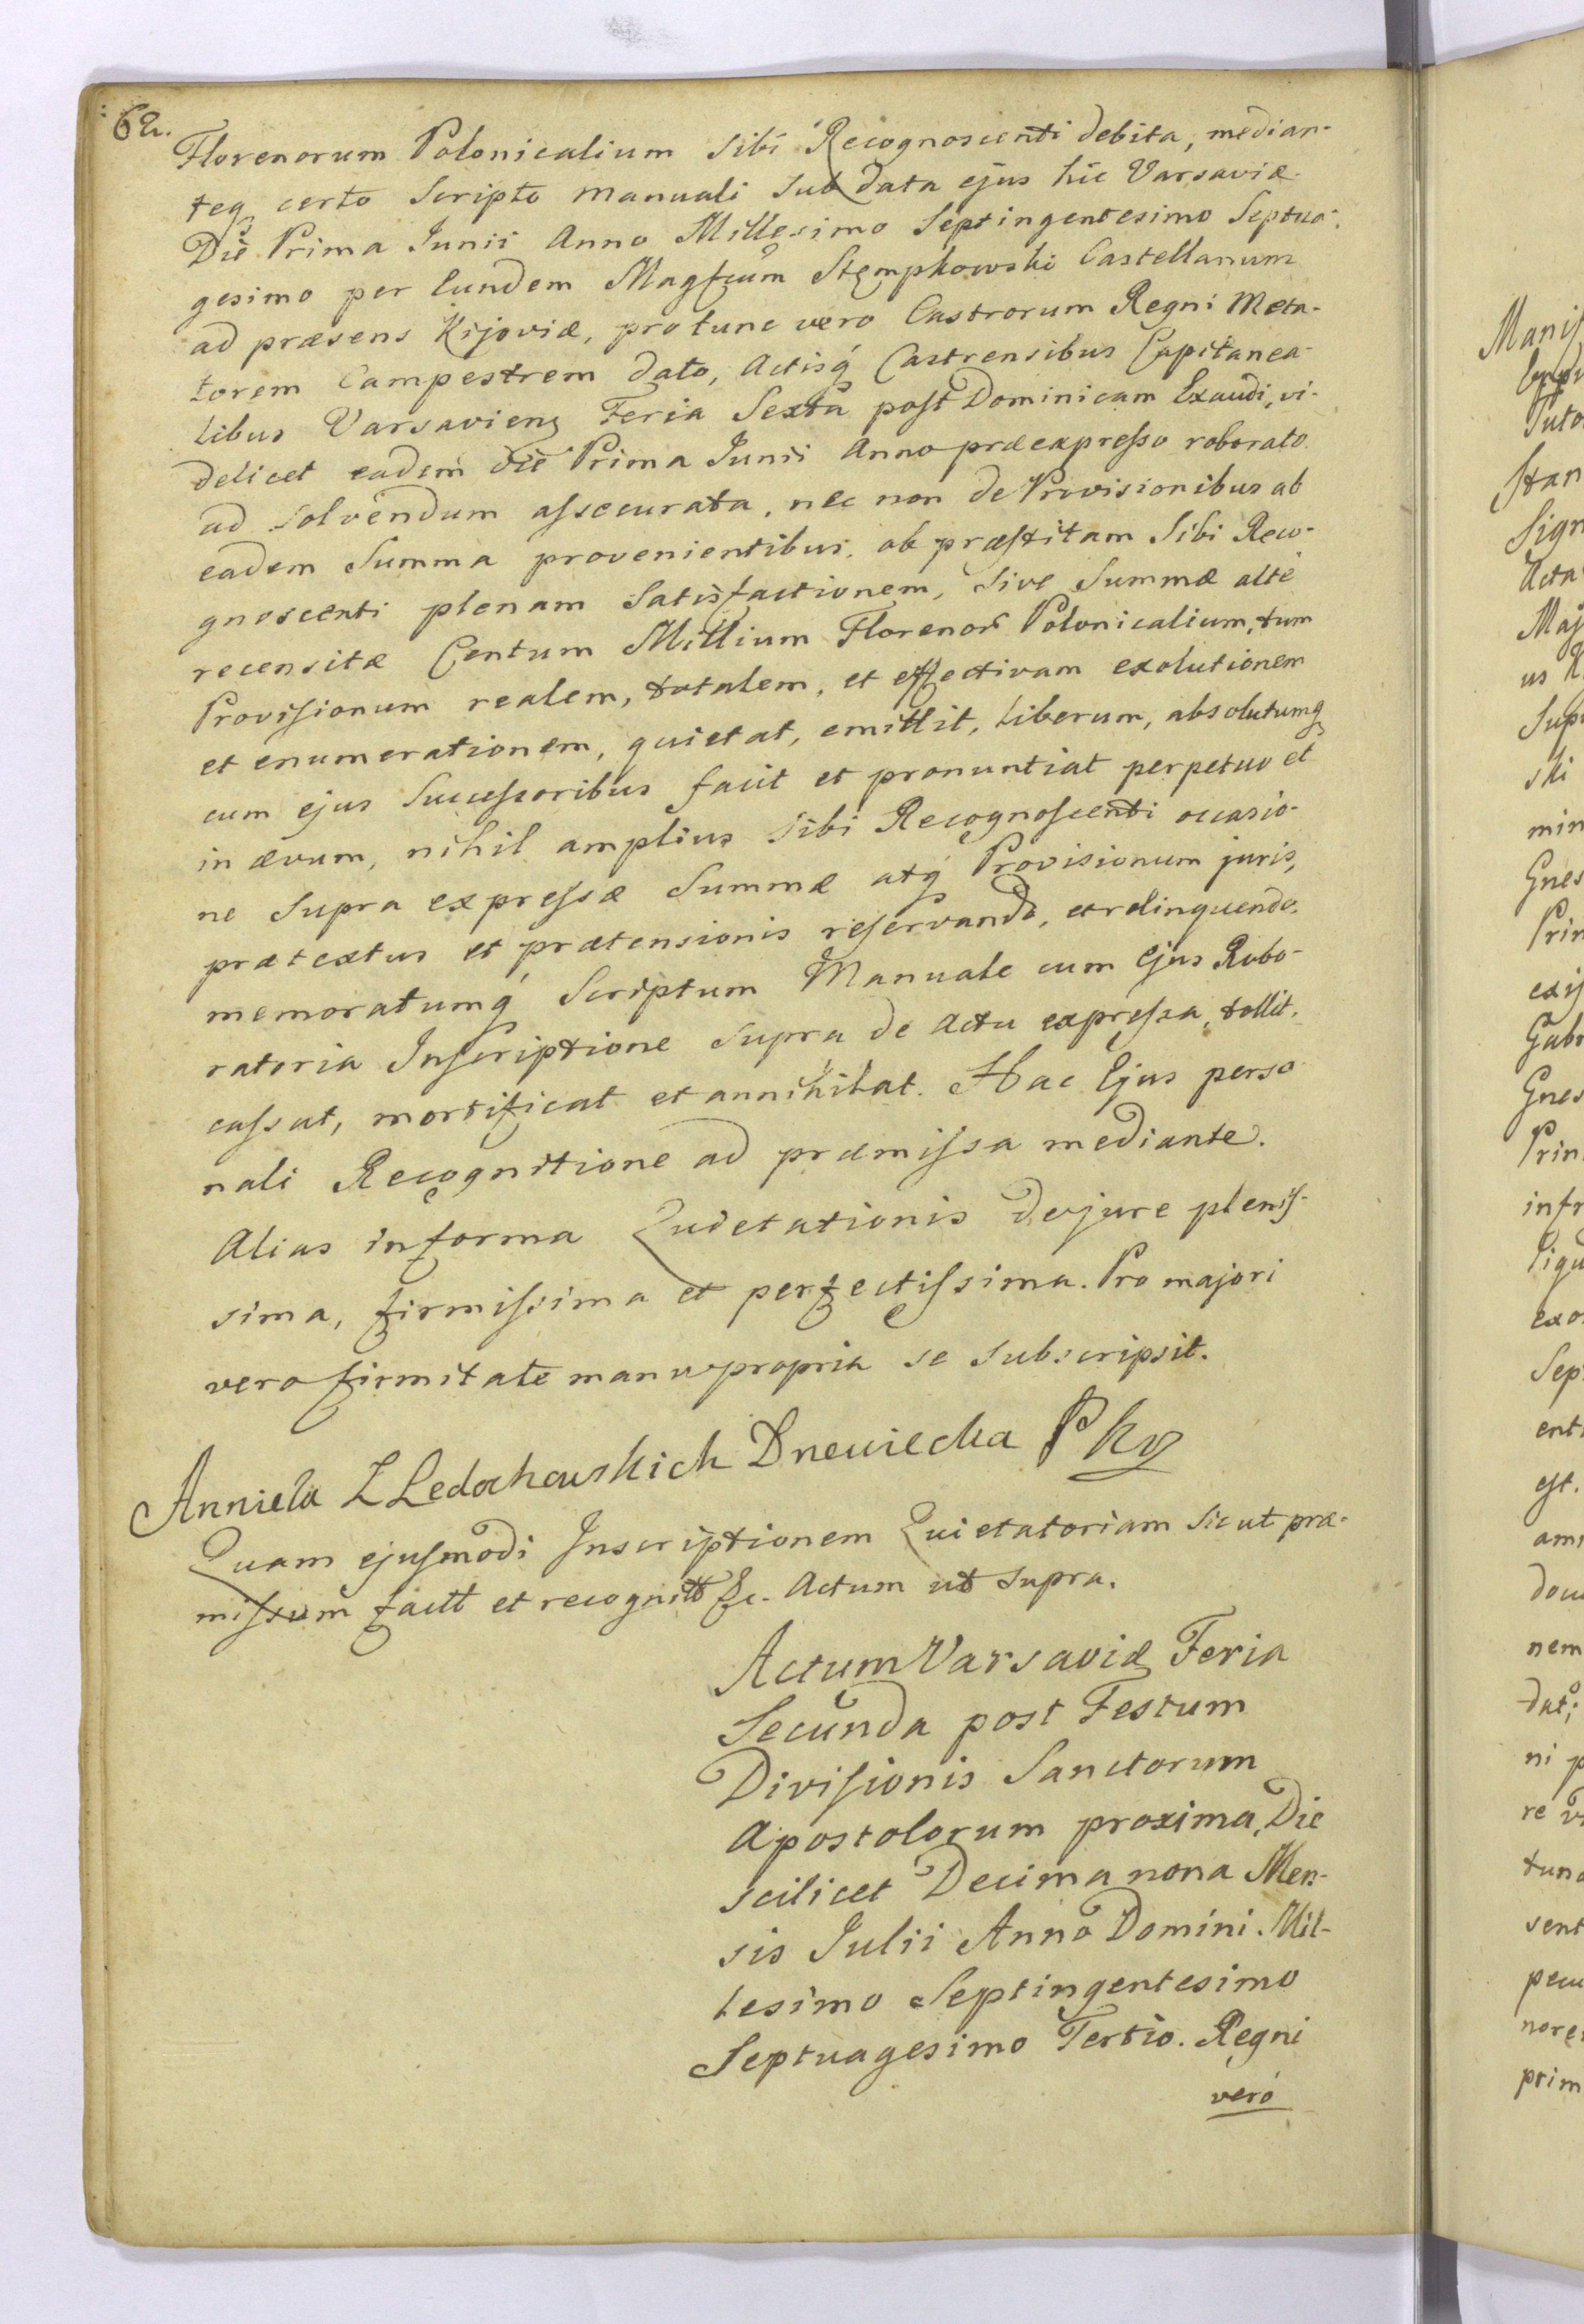 62.
Florenorum Polonicalium sibi Recognoscenti debita, median-
teq certo Scripto manuali sub data ejus hic Varsaviæ
Die Prima Junii Anno Millesimo Septingentesimo Septua-
gesimo per Eundem Magfcum Stempkowski Castellanum
ad præsens Kijoviæ, pro tunc vero Castrorum Regni Meta-
torem Campestrem dato, Actisq́ Castrensibus Capitanea-
libus Varsavien Feria Sexta post Dominicam Exaudi, vi-
delicet eadem die Prima Junii Anno præexpresso roborato
ad solvendum assecurata, nec non de Provisionibus ab
eadem Summa provenientibus, ob præstitam Sibi Reco-
gnoscenti plenam Satisfactionem, sive Summæ alte
recensitæ Centum Millium Florenor Polonicalium, tum
Provisionum realem, totalem, et effectivam exolutionem
et enumerationem, quietat, emittit, liberum, absolutumq
cum ejus Successoribus facit et pronuntiat perpetuo et
in ævum, nihil amplius Sibi Recognoscenti occasio-
ne supra expressæ Summæ atq́ Provisionum juris,
prætextus et prætensionis reservando, et relinquendo.
memoratumq́ Scriptum Manuale cum Ejus Robo-
ratoria Inscriptione supra de Actu expressa, tollit.
cassat, mortificat et annihilat. Hac Ejus perso
nali Recognitione ad præmissa mediante.
Alias in forma Quietationis de jure plenis-
sima, firmissima et perfectissima. Pro majori
vero firmitate manu propria se subscripsit.
Anniela Z Ledochowskich Drewiecka P K
Quam ejusmodi Inscriptionem Quietatoriam sicut præ-
missum facit et recognit &c. Actum ut supra.
Actum Varsaviæ Feria
Secunda post Festum
Divisionis Sanctorum
Apostolorum proxima, Die
scilicet Decima nona Men-
sis Julii Anno Domini Mil-
lesimo Septingentesimo
Septuagesimo Tertio. Regni
vero
Manis
Tuto
Stan
Sign
Acta
Maj
us K
Supr
ski
min
Gnes
Prin
exis
Gabr
Gnes
Prin
infr
Sep
ent
est.
am
docu
nem
dat;
ni p
re v
tunc
sent
pecu
nore
prim